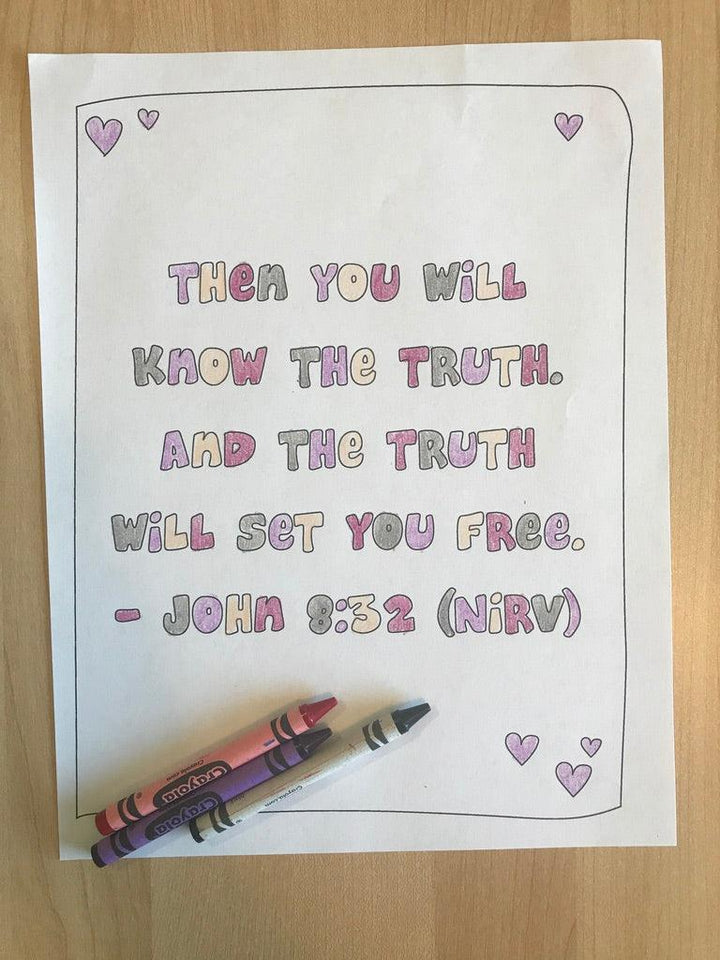 THen YOU WiLL
KnOW THe TRUTH.
AnD THe TRUTH
WiLL SeT YOU FRee.
- JOHn 8:32 (NiRV)
Crayola
Crayola.com
Crayola
Crayola.com